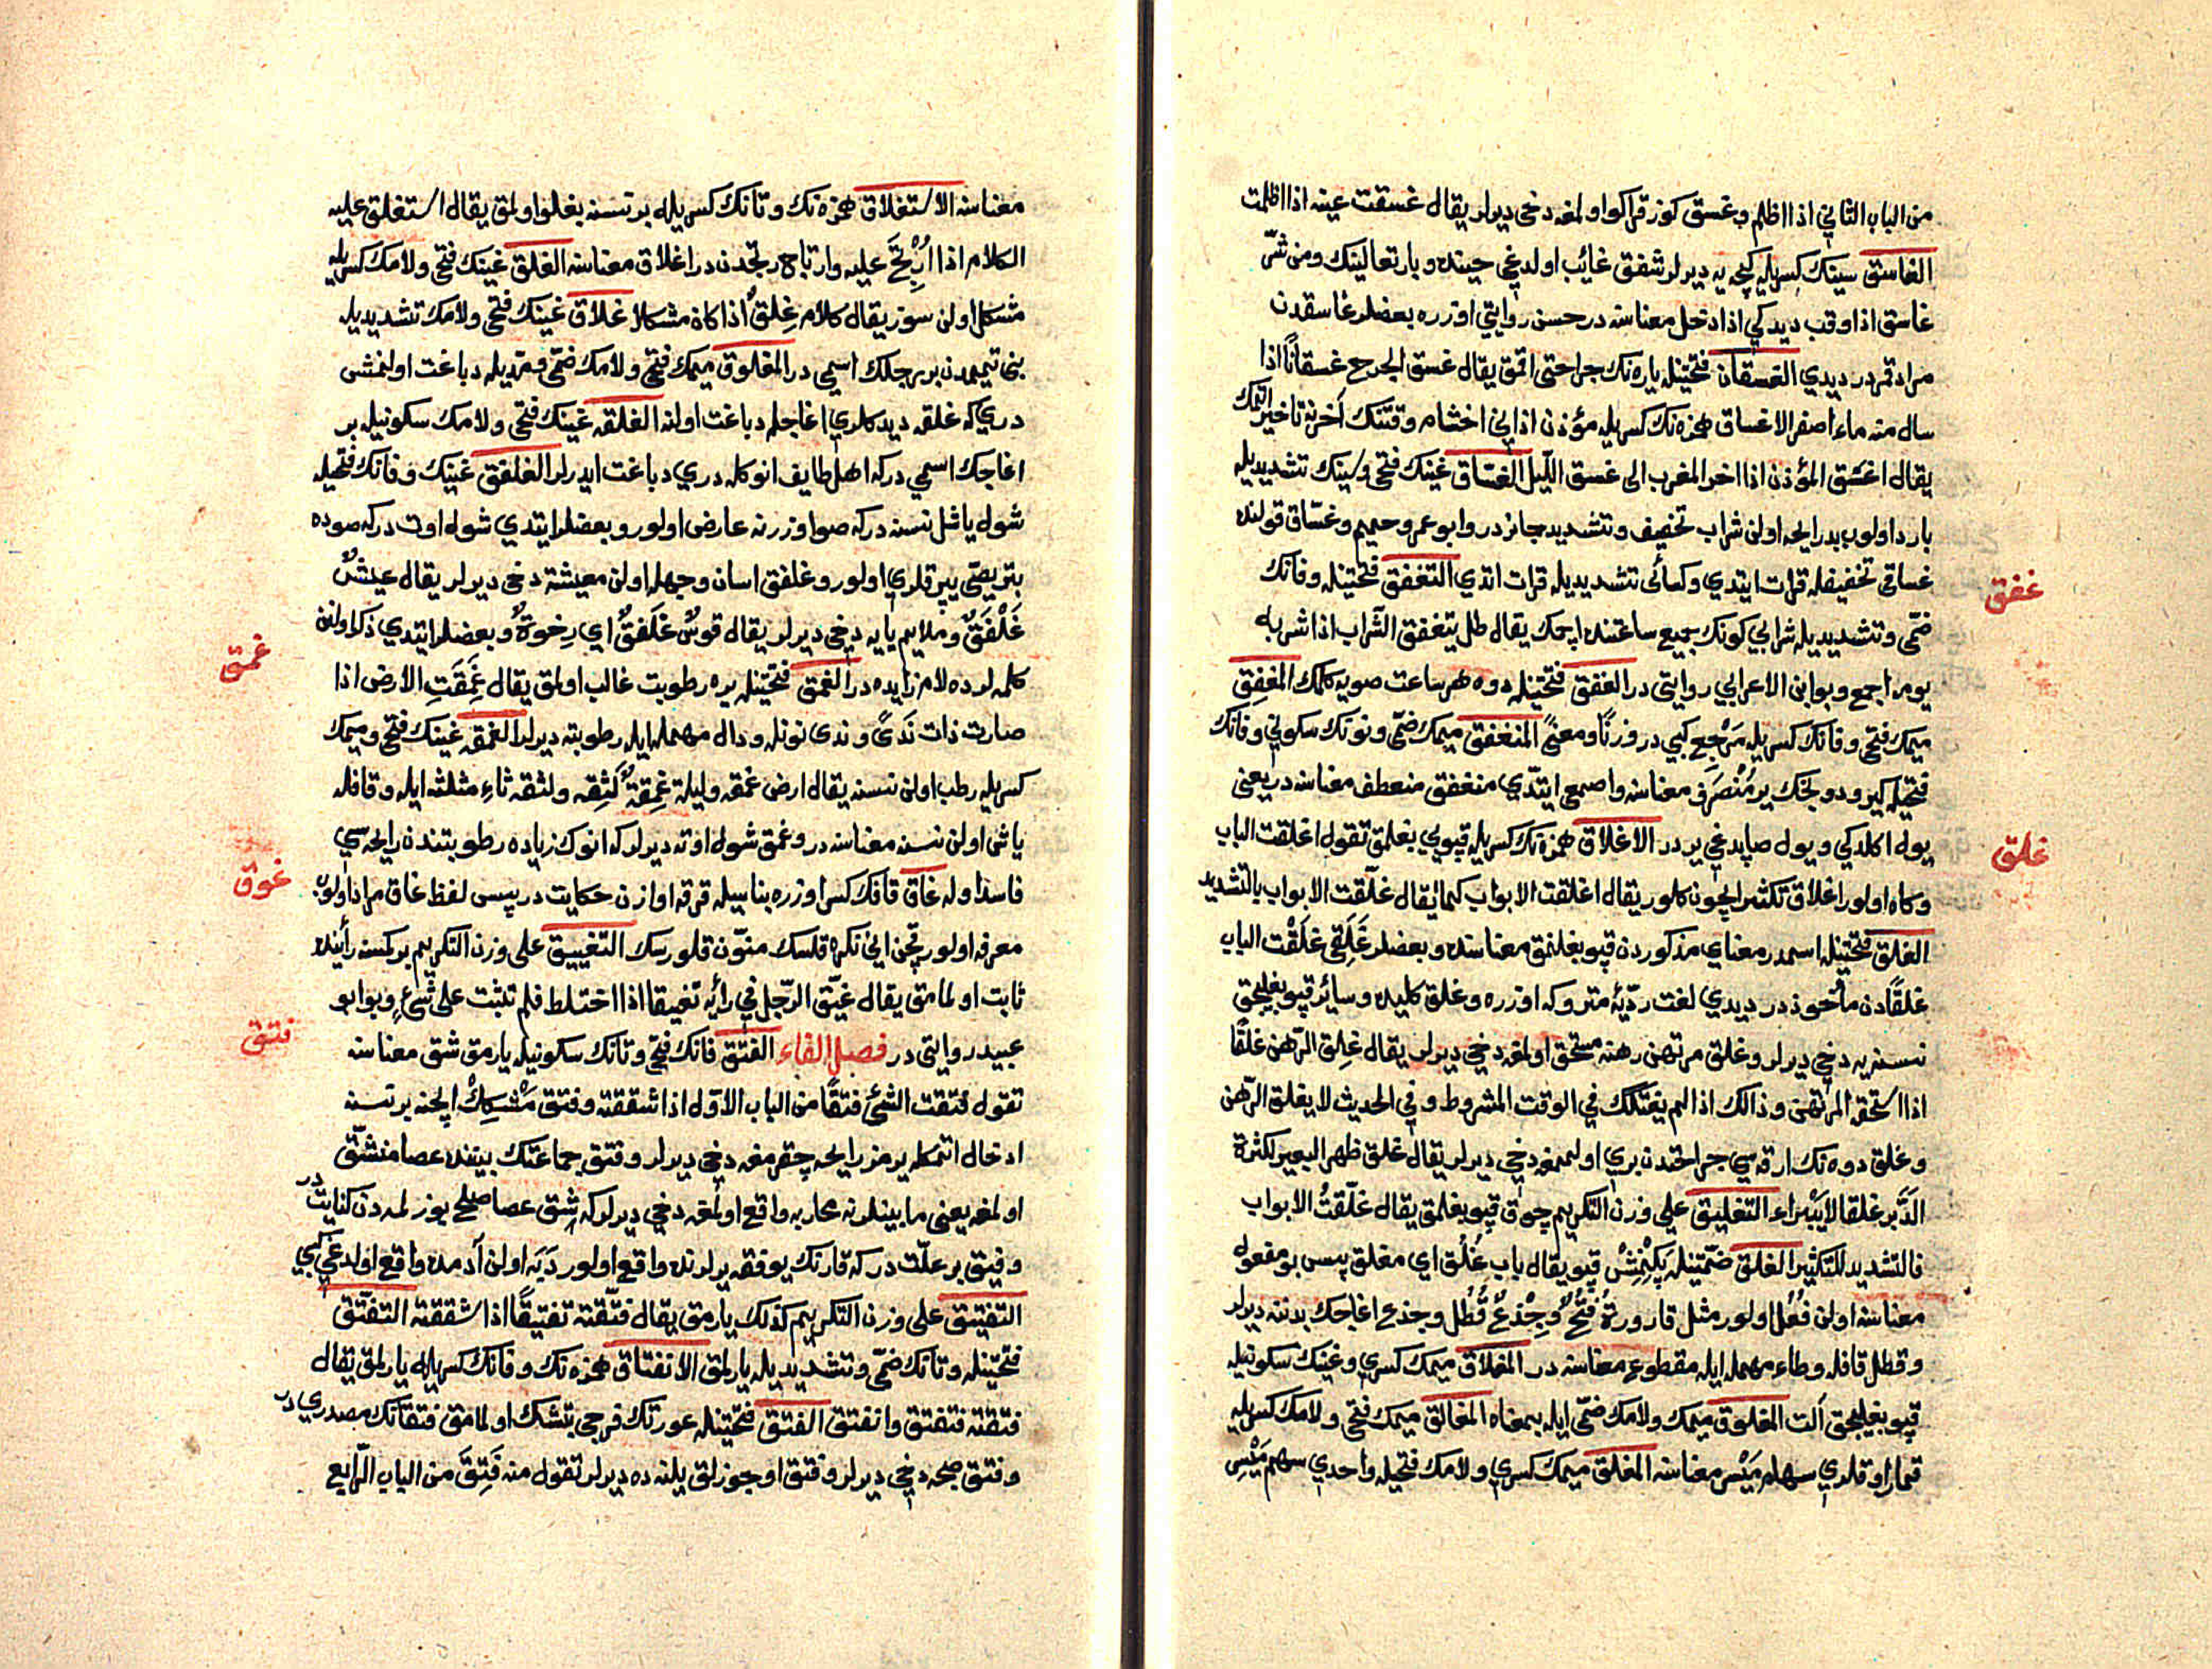 من الباب الثاني اذا اظلم وغسق كوز قراكو اولمغه دخي ديرلر يقال غسقت عينه اذا اظلمت
الغاسق سينك كسريله كيجه يه ديرلر شفق غائب اولدغي حينده وباري تعالينك ومن شر
غاسق اذا وقب ديدكي اذا دخل معناسنه در حسن روايتي اوزره بعضلر غاسقدن
مراد قمر در ديدي الغسقان فتحتينله ياره نك جراحتي اقمق يقال غسق الجرح غسقانا اذا
سال منه ماء اصفر الاغساق همزه نك كسريله مؤذن اذاني اخشام وقتنك آخرنه تاخير اتمك
يقال اغسق المؤذن اذا اخر المغرب الى غسق الليل الغساق غينك فتحي وسينك تشديديله
بارد اولوب بد رايحه اولن شراب تخفيف وتشديد جائز در وابو عمرو حميم وغساق قولنده
غساقي تخفيفله قرات ايتدي وكسائى تشديديله قرات اتدي التغفق فتحتينله وفانك
غفق
ضمي وتشديديله شرابي كونك جميع ساعتنده ايچمك يقال ظل يتغفق الشراب اذا شربه
يومه اجمع وبو ابن الاعرابي روايتي در الغفق فتحتينله دوه هر ساعت صويه كلمك المغفق
ميمك فتحي وفانك كسريله مرجع كبي در وزنا ومعنى المنغفق ميمك ضمي ونونك سكوني وفانك
فتحيله كيرو دونجك ير منصرف معناسنه واصمعي ايتدي منغفق منعطف معناسنه در يعني
يول اكلدكي ويول صاپدغي ير در الاغلاق همزه نك كسريله قپويي بغلمق تقول اغلقت الباب
غلق
وكاه اولور اغلاق تكثير ايچون كلور يقال اغلقت الابواب كما يقال غلقت الابواب بالتشديد
الغلق فتحتينله اسمدر معناي مذكوردن قپو بغلنمق معناسنده وبعضلر غلقي غلقت الباب
غلقا دن مأخوذ در ديدي لغت رديۀ متروكه اوزره وغلق كليده وسائر قپو بغليجق
نسنه يه دخي ديرلر وغلق مرتهن رهنه مستحق اولمغه دخي ديرلر يقال غلق الرهن غلقا
اذا استحقه المرتهن وذالك اذا لم يفتكك في الوقت المشروط وفي الحديث لا يغلق الرهن
وغلق دوه نك ارقه سي جراحتدن بري اولممغه دخي ديرلر يقال غلق ظهر البعير لكثرة
الدبر غلقا لا يبراء التغليق على وزن التكريم چوق قپو بغلمق يقال غلقت الابواب
فالتشديد للتكثير الغلق ضمتينله پكنمش قپو يقال باب غلق اي مغلق پس بو مفعول
معناسنه اولن فعل اولور مثل قارورة فتح وجذع قطل وجذع اغاجك بدننه ديرلر
وقطل قافله وطاء مهمله ايله مقطوع معناسنه در المغلاق ميمك كسري وغينك سكونيله
قپو بغليجق آلت المغلوق ميمك ولامك ضمي ايله بمعناه المغالق ميمك فتحي ولامك كسريله
قمار اوقلري سهام ميسر معناسنه المغلق ميمك كسري ولامك فتحيله واحدي سهم ميسر
معناسنه الاستغلاق همزه نك وتانك كسريله بر نسنه بغلو اولمق يقال استغلق عليه
الكلام اذا ارتج عليه وارتاج رتجدن در اغلاق معناسنه الغلق غينك فتحي ولامك كسريله
مشكل اولن سوز يقال كلام غلق اذا كان مشكلا غلاق غينك فتحي ولامك تشديديله
بني تميمدن بر رجلك اسمي در المغلوق ميمك فتحي ولامك ضمي ومديله دباغت اولنمش
دري كه غلقه ديدكلري اغاجله دباغت اولنه الغلقه غينك فتحي ولامك سكونيله بر
اغاجك اسمي در كه اهل طايف انوكله دري دباغت ايدرلر الغلفق غينك وفانك فتحيله
شول ياشل نسنه در كه صو اوزرنه عارض اولور وبعضلر ايتدي شول اوت در كه صوده
بتر يصي يپرقلري اولور وغلفق اسان وجهله اولن معيشة دخي ديرلر يقال عيش
غلفق وملايم يايه دخي ديرلر يقال قوس غلفق اي رخوة وبعضلر ايتدي ذكر اولنن
كلمه لرده لام زايده در الغمق فتحتينله يره رطوبت غالب اولمق يقال غمقت الارض اذا
غمق
صارت ذات ندى وندى نونله ودال مهمله ايله رطوبته ديرلر الغمقه غينك فتحي وميمك
كسريله رطب اولن نسنه يقال ارض غمقه وليلة غمقة لثقه ولثقه ثاء مثلثه ايله وقافله
ياش اولن نسنه معناسنه در وغمق شول اوته ديرلر كه انوك زياده رطوبتندن رايحه سي
فاسد اوله غاق قافك كسر اوزره بناسيله قرقه اوازن حكايت در پس لفظ غاق مراد اولوب
غوق
معرفه اولور قچن انى نكره قلسك منون قلورسك التغييق على وزن التكريم بر كسنه رأينده
ثابت اولمامق يقال غيق الرجل في رأيه تغييقا اذا اختلط فلم تثبت على شيء وبو ابو
عبيد روايتى در فصل الفاء الفتق فانك فتحي وتانك سكونيله يارمق شق معناسنه
فتق
تقول فتقت الشئ فتقا من الباب الاول اذا شققته وفتق مشكك ايچنه بر نسنه
ادخال اتمكله يرمز رايحه چقرمغه دخي ديرلر وفتق جماعتك بيننده عصا منشق
اولمغه يعني مابينلرنه محاربه واقع اولمغه دخي ديرلر كه شق عصا صلح بوزلمه دن كنايت در
وفتق بر علت در كه قارنك يوفقه يرلرنده واقع اولور دبه اولن آدمده واقع اولدغي كبي
التفتيق على وزن التكريم كذلك يارمق يقال فتقته تفتيقا اذا شققته التفتق
فتحتينله وتانك ضمي وتشديديله يارلمق الانفتاق همزه نك وفانك كسريله يارلمق يقال
فتقته فتفتق وانفتق الفتق فتحتينله عورتك فرجي بتشك اولمامق فتقانك مصدري در
وفتق صبحه دخي ديرلر وفتق اوجوزلق يلنه ده ديرلر تقول منه فتق من الباب الرابع